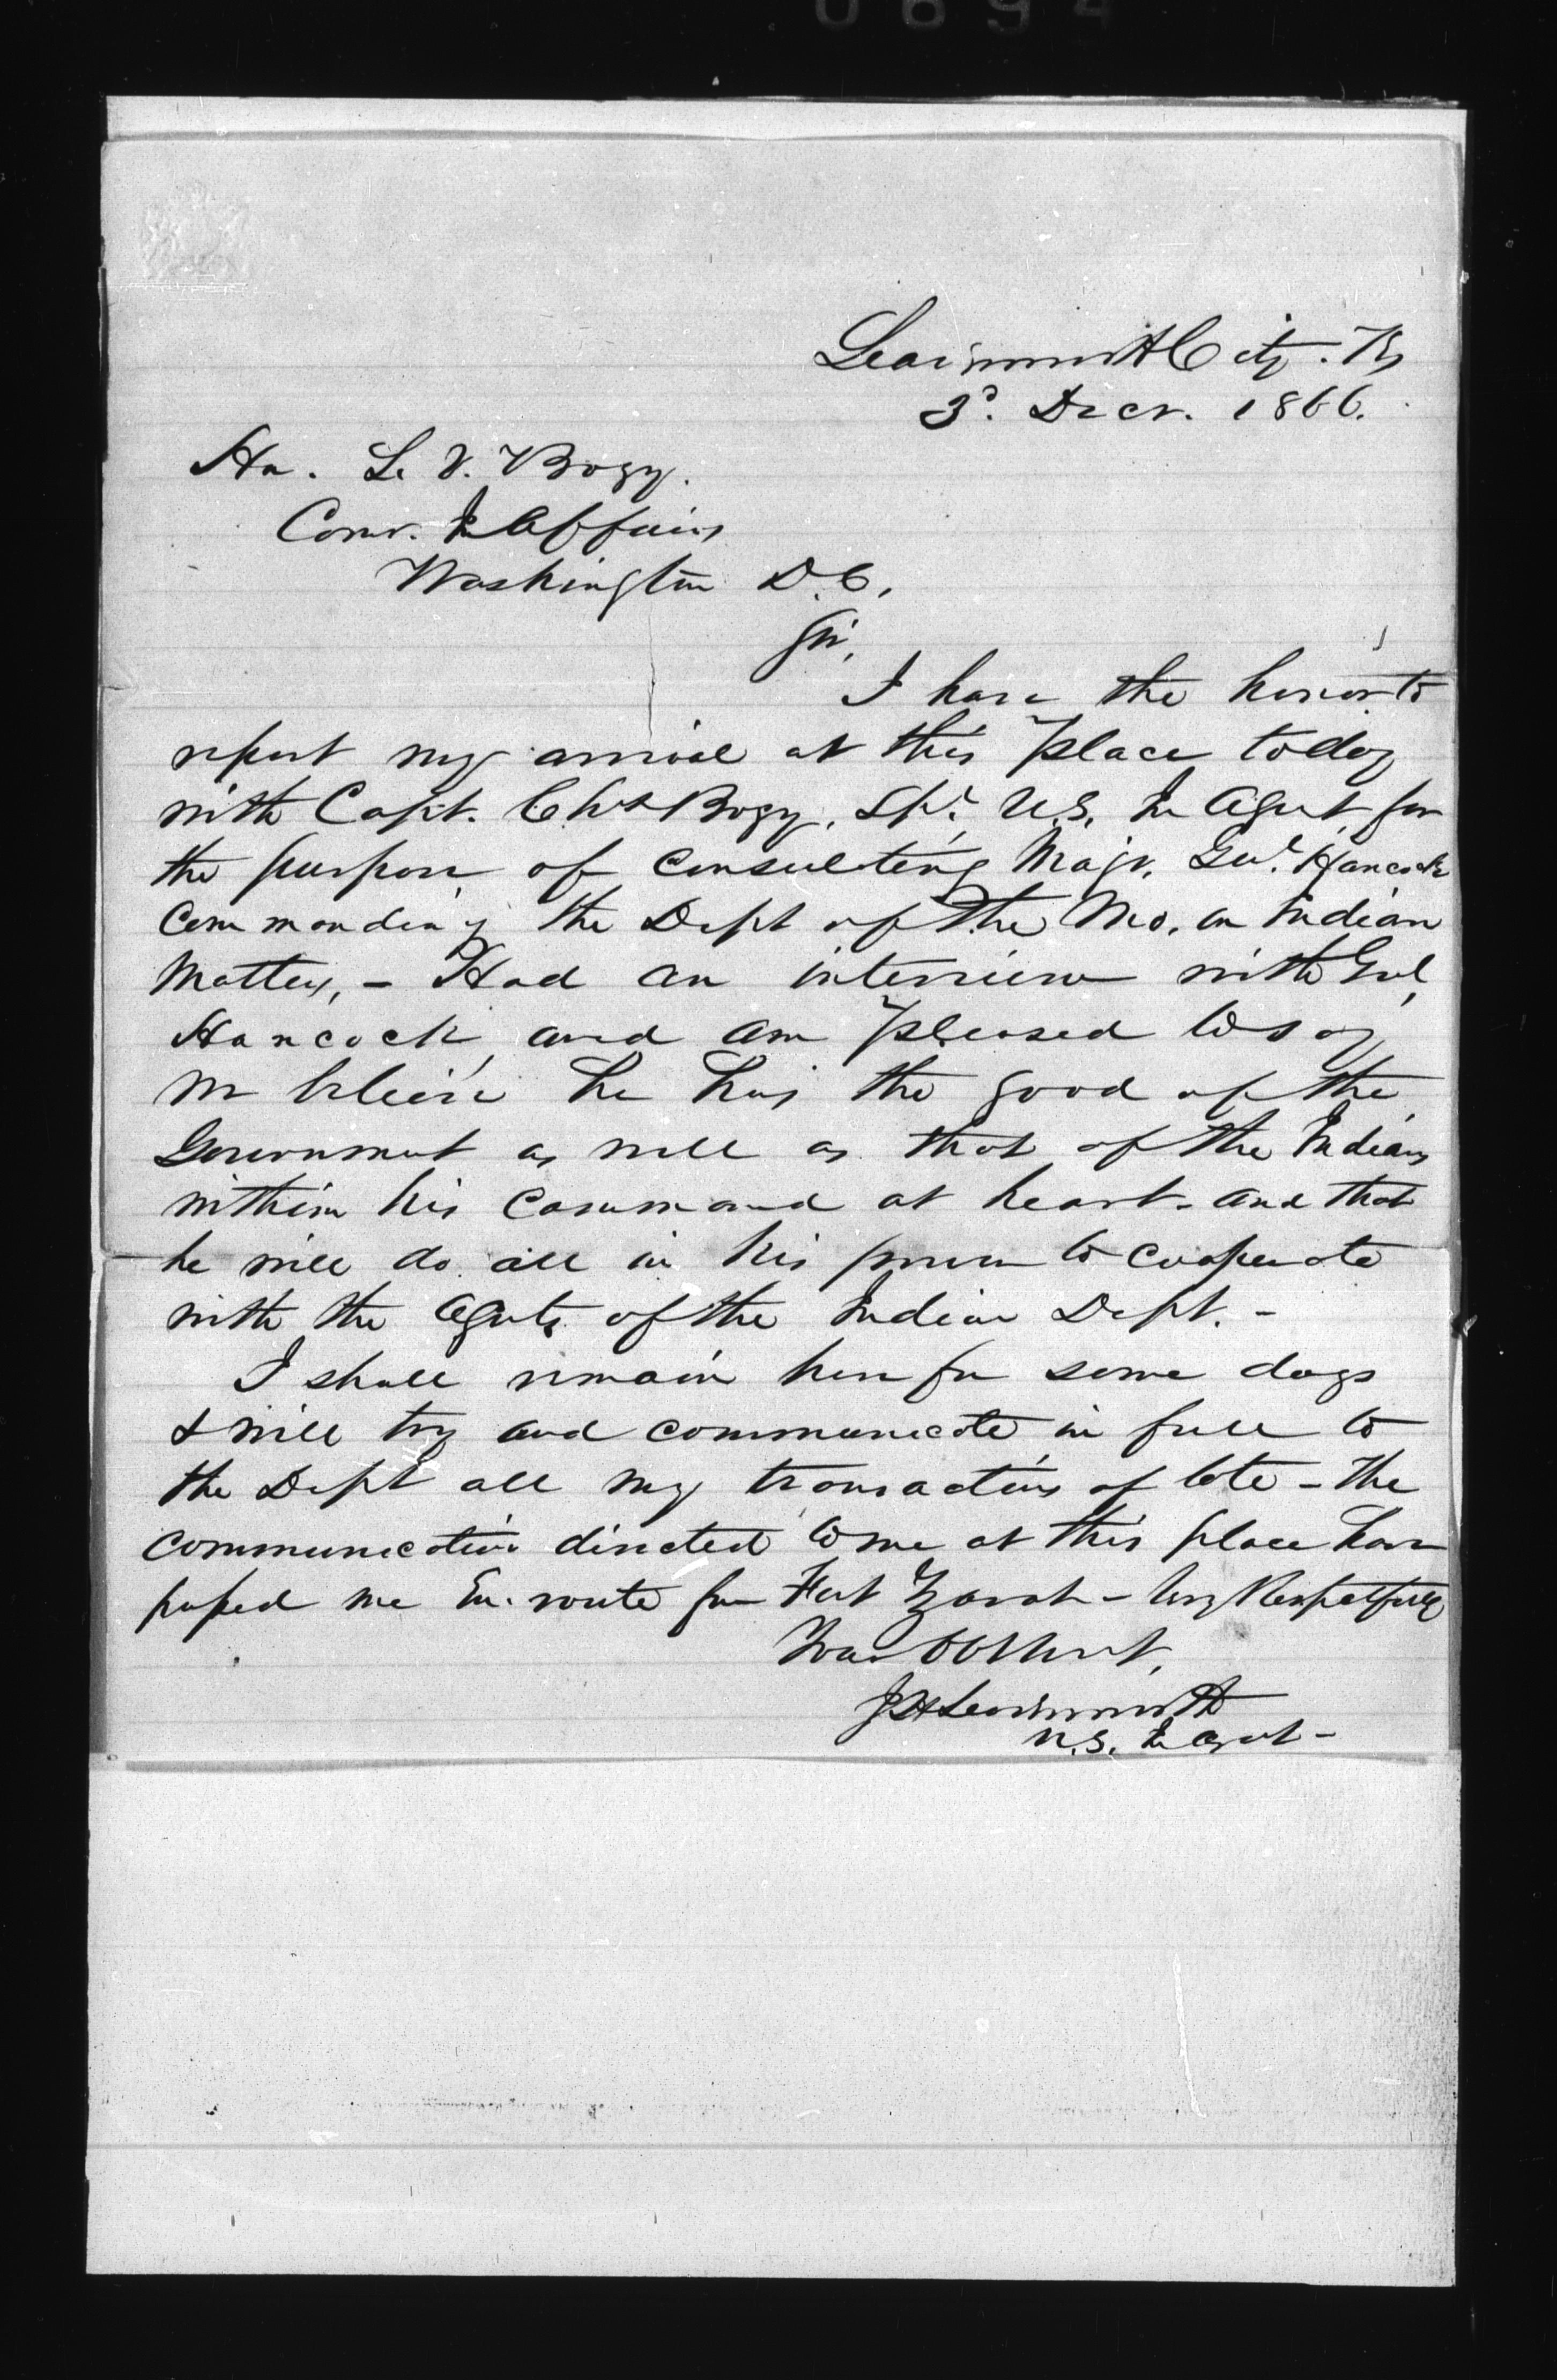 0694
Leavenworth City. Ks
3d. Decr. 1866.
Hon. L. V. Bogy.
Comr. In Affairs
Washington D.C.
Sir,
I have the honor to
report my arrival at this place today
with Capt. Chas Bogy, Spl. U.S. In Agent for
the purpose of consulting Majr. Genl. Hancock
Commanding the Dept of the Mo. on Indian
Matters, - Had an interview with Genl,
Hancock, and am pleased to say
we believe he has the good of the
Government as well as that of the Indians
within his Command at heart - and that
he will do all in his power to cooperate
with the Agents of the Indian Dept. -
I shall remain here for some days
& will try and communicate in full to
the Dept all my transactions of late - The
communications directed to me at this place have
passed me En. route for Fort Zarah - Very Respectfully
Your Obt Servt,
J H Leavenworth
U.S. In Agent -